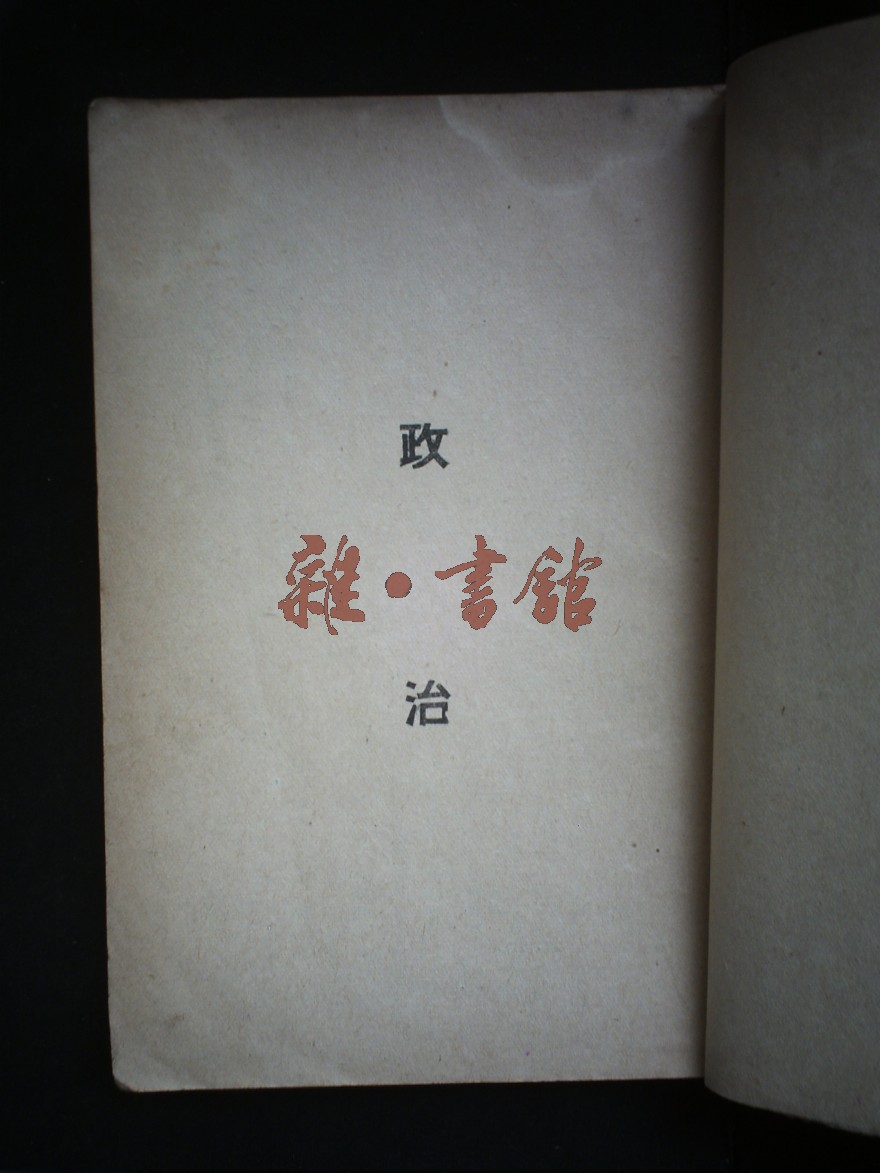 政
雜·書館
治